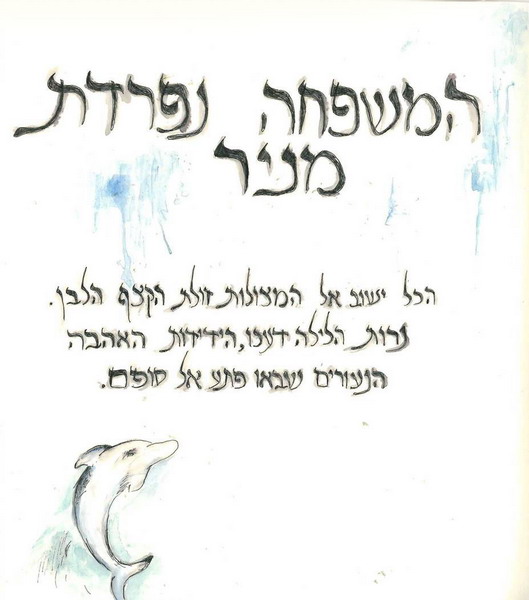 המשפחה נפרדת
מניר
הכל ישוב אל המצולות זולת הקצף הלבן.
נרות הלילה דעכו, הידידות האהבה
הנעורים שבאו פתע אל סופם.